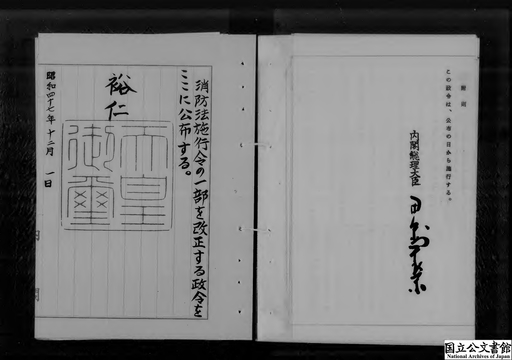 附則
この政令は、公布の日から施行する。
内閣総理大臣
田中角榮
消防法施行令の一部を改正する政令を
ここに公布する。
裕仁
天皇
御璽
昭和四十七年十二月一日
内閣
国立公文書館
National Archives of Japan